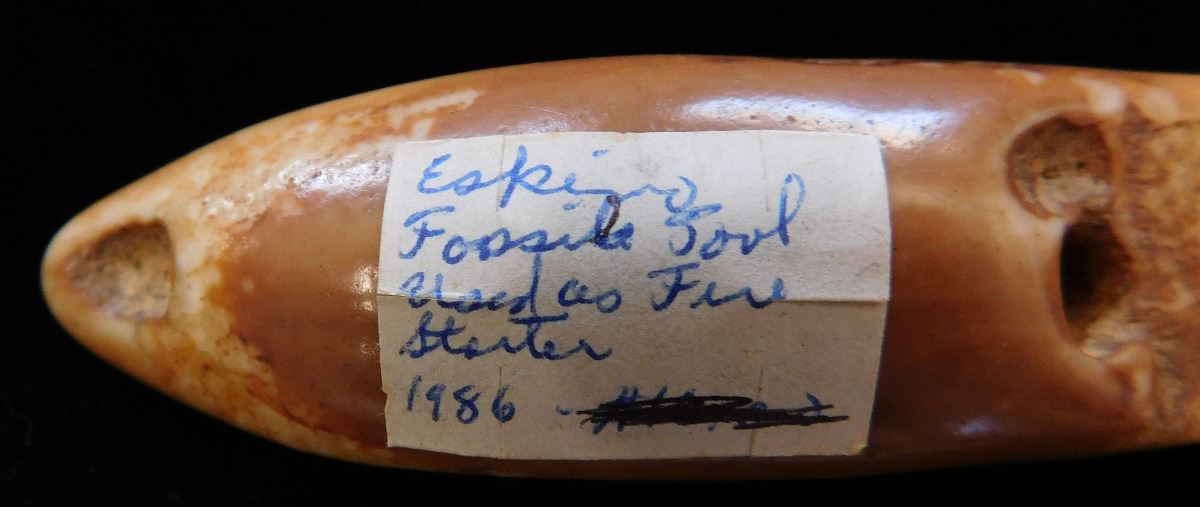 Eskimo
Fossile Tool
Used as Fire
Starter
1986 -